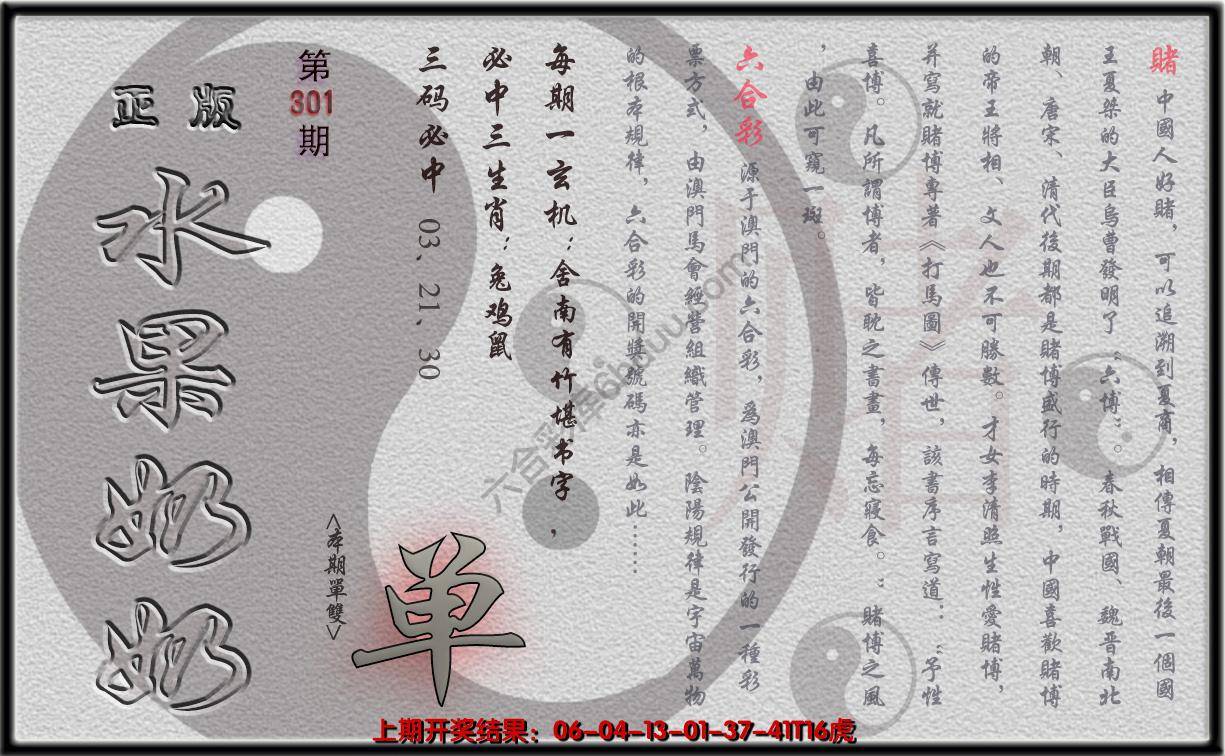 賭 中國人好賭，可以追溯到夏商，相傳夏朝最後一個國
王夏桀的大臣烏曹發明了“六博”。春秋戰國、魏晋南北
朝、唐宋、清代後期都是賭博盛行的時期，中國喜歡賭博
的帝王將相、文人也不可勝數。才女李清照生性愛賭博，
并寫就賭博專著《打馬圖》傳世，該書序言寫道：“予性
喜博。凡所謂博者，皆耽之書晝，每忘寢食。”賭博之風
，由此可窺一斑。
六合彩 源于澳門的六合彩，為澳門公開發行的一種彩
票方式，由澳門馬會經營組織管理。陰陽規律是宇宙萬物
的根本規律，六合彩的開獎號碼亦是如此……
每期一玄机：舍南有竹堪书字，
必中三生肖：兔鸡鼠
三码必中 03、21、30
第
301
期
正版
水果奶奶
<本期單雙>
单
六合彩库6huuu.com
上期开奖结果：06-04-13-01-37-41T16虎